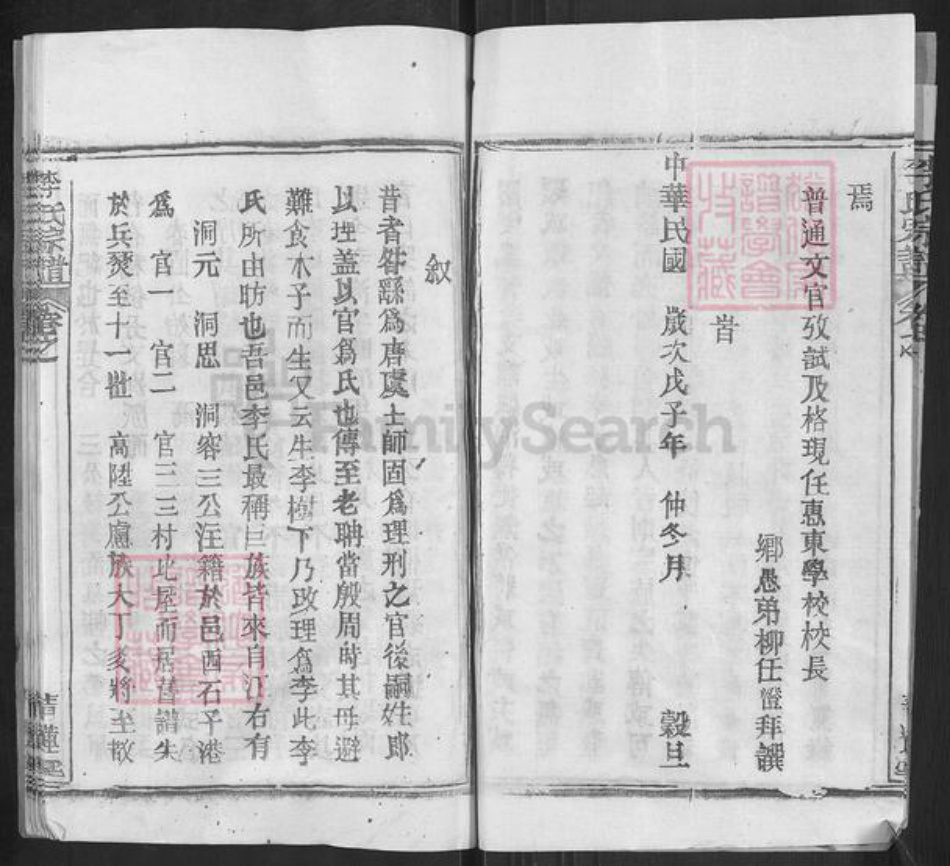 李氏宗譜
焉
普通文官攷試及格現任惠東學校校長
鄉愚弟柳任 拜譔
旹
中華民國 歲次戊子年 仲冬月 穀旦
叙
昔者咎繇爲唐虞士師固爲理刑之官後嗣姓郎
以理盖以官爲氏也傳至老聃當殷周時其母避
難食木子而生又云生李樹下乃攺理爲李此李
氏所由昉也吾邑李氏最稱巨族皆來自江右有
洞元 洞思 洞容三公注籍於邑西石子港
爲 官一 官二 官三三村比屋而居舊譜失
於兵燹至十一世 高陞公慮族大丁多將至散
李氏宗譜
青蓮
FamilySearch